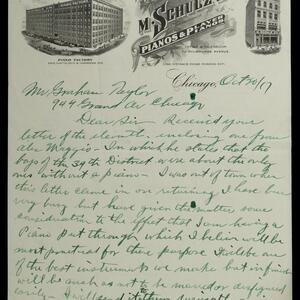 M. Schulz
PIANOS & PLAYER
PIANO FACTORY
OFFICE & SALESROOM
711 MILWAUKEE AVENUE
Chicago, Oct 20/17
Mr. Graham Taylor
944 Grand Av Chicago
Dear Sir Received your
letter of the eleventh enclosing one from
Alex Maggio - In which he states that the
boys of the 39th District were about the only
ones without a piano - I was out of town when
this letter came in on returning I have been
very busy but have given the matter some
consideration to the effect that I am having a
Piano put through which I believe will be
most practical for there purpose It will be one
of the best instruments we make but in finish
will be such as not to be marred or designed
easily - I will send it